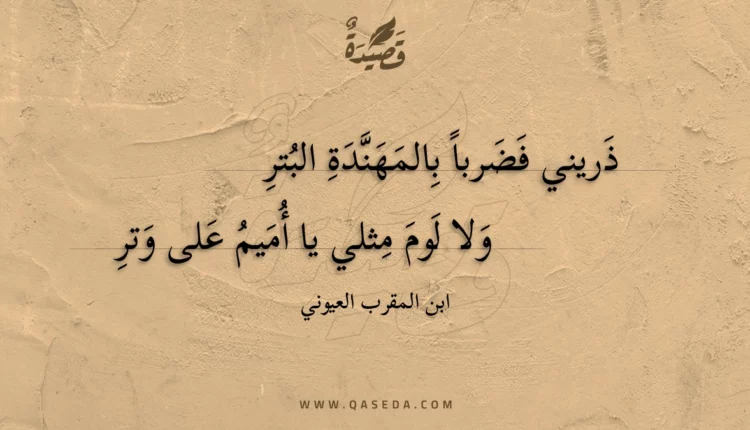 قَصِيدَةٌ
ذَريني فَضَرباً بِالمَهَنَّدَةِ البُترِ
وَلا لَومَ مِثلي يا أُمَيمُ عَلى وَترِ
ابن المقرب العيوني
WWW.QASEDA.COM